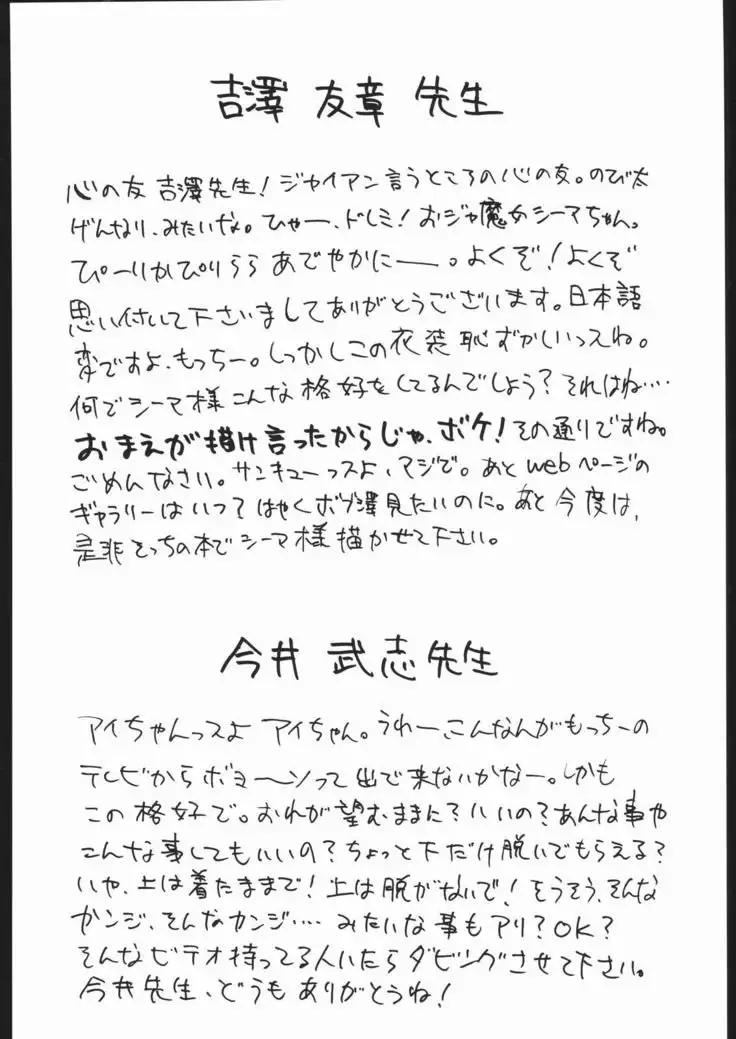 吉澤 友章 先生
心の友 吉澤先生！ジャイアン言うところの心の友。のび太
げんなり、みたいな。ひゃー、ドレミ！おジャ魔女シーマちゃん。
ぴーりかぴりらら あでやかにー。よくぞ！よくぞ
思い付いて下さいましてありがとうございます。日本語
変ですよ、もっちー。しっかしこの衣装恥ずかしいっスね。
何でシーマ様こんな格好をしてるんでしょう？それはね…
おまえが描け言ったからじゃ、ボケ！その通りですね。
ごめんなさい。サンキューっスよ、マジで。あとwebページの
ギャラリーはいつ？はやくボブ澤見たいのに。あと今度は、
是非そっちの本でシーマ様描かせて下さい。
今井 武志先生
アイちゃんっスよ アイちゃん。うわー、こんなんがもっちーの
テレビからボヨ〜ンって出で来ないかなー。しかも
この格好で。おれが望むままに？いいの？あんな事や
こんな事してもいいの？ちょっと下だけ脱いでもらえる？
いや、上は着たままで！上は脱がないで！そうそう、そんな
カンジ、そんなカンジ…. みたいな事もアリ？OK？
そんなビデオ持ってる人いたらダビングさせて下さい。
今井先生、どうもありがとうね！